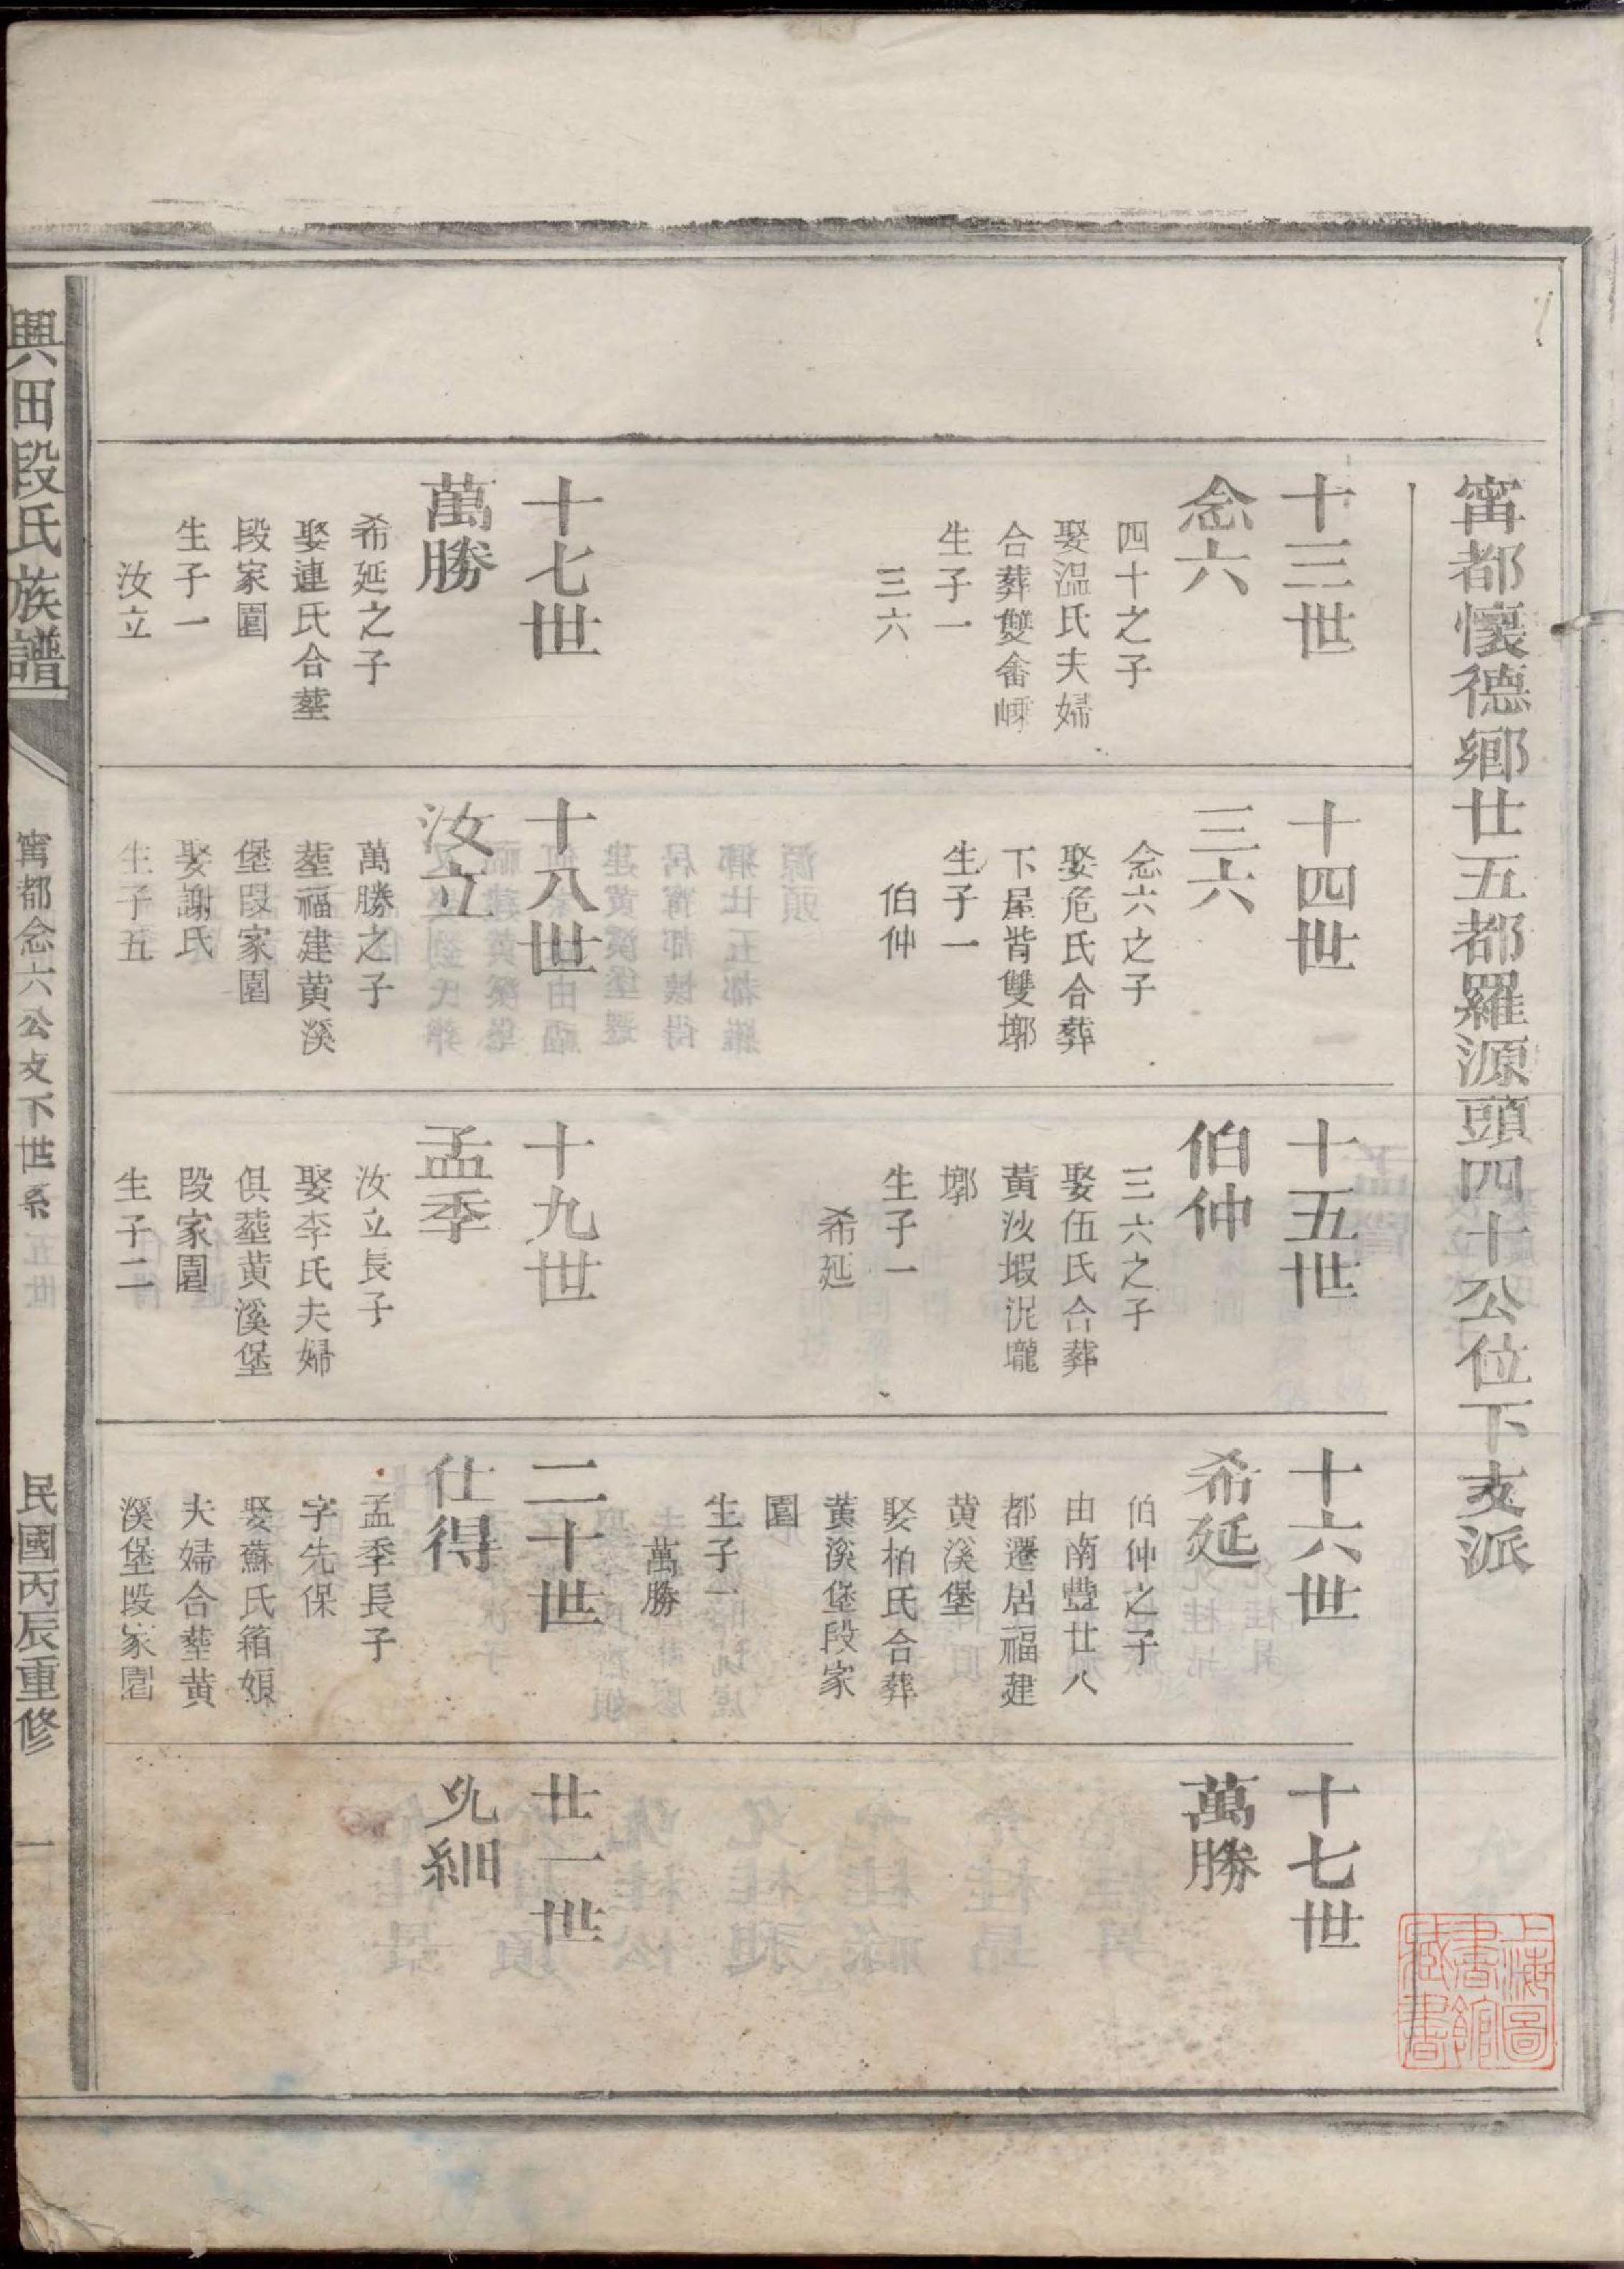 甯都懷德鄉廿五都羅源頭四十公位下支派
十三世
念六
四十之子
娶溫氏夫婦
合葬雙畬㟂
生子一
三六
十四世
三六
念六之子
娶危氏合葬
下屋背雙墎
生子一
伯仲
十五世
伯仲
三六之子
娶伍氏合葬
黃沙塅泥壠
墎
生子一
希延
十六世
希延
伯仲之子
由南豐廿八
都遷居福建
黃溪堡
娶柏氏合葬
黃溪堡段家
園
生子一
萬勝
十七世
萬勝
十七世
萬勝
希延之子
娶連氏合塟
段家園
生子一
汝立
十八世
汝立
萬勝之子
塟福建黃溪
堡段家園
娶謝氏
生子五
十九世
孟季
汝立長子
娶李氏夫婦
俱塟黃溪堡
段家園
生子二
二十世
仕得
孟季長子
字先保
娶蘇氏箱娘
夫婦合塟黃
溪堡段家園
廿一世
細
興田段氏族譜
甯都念六公支下世系
五世
民國丙辰重修
一
上海圖
書館
藏書